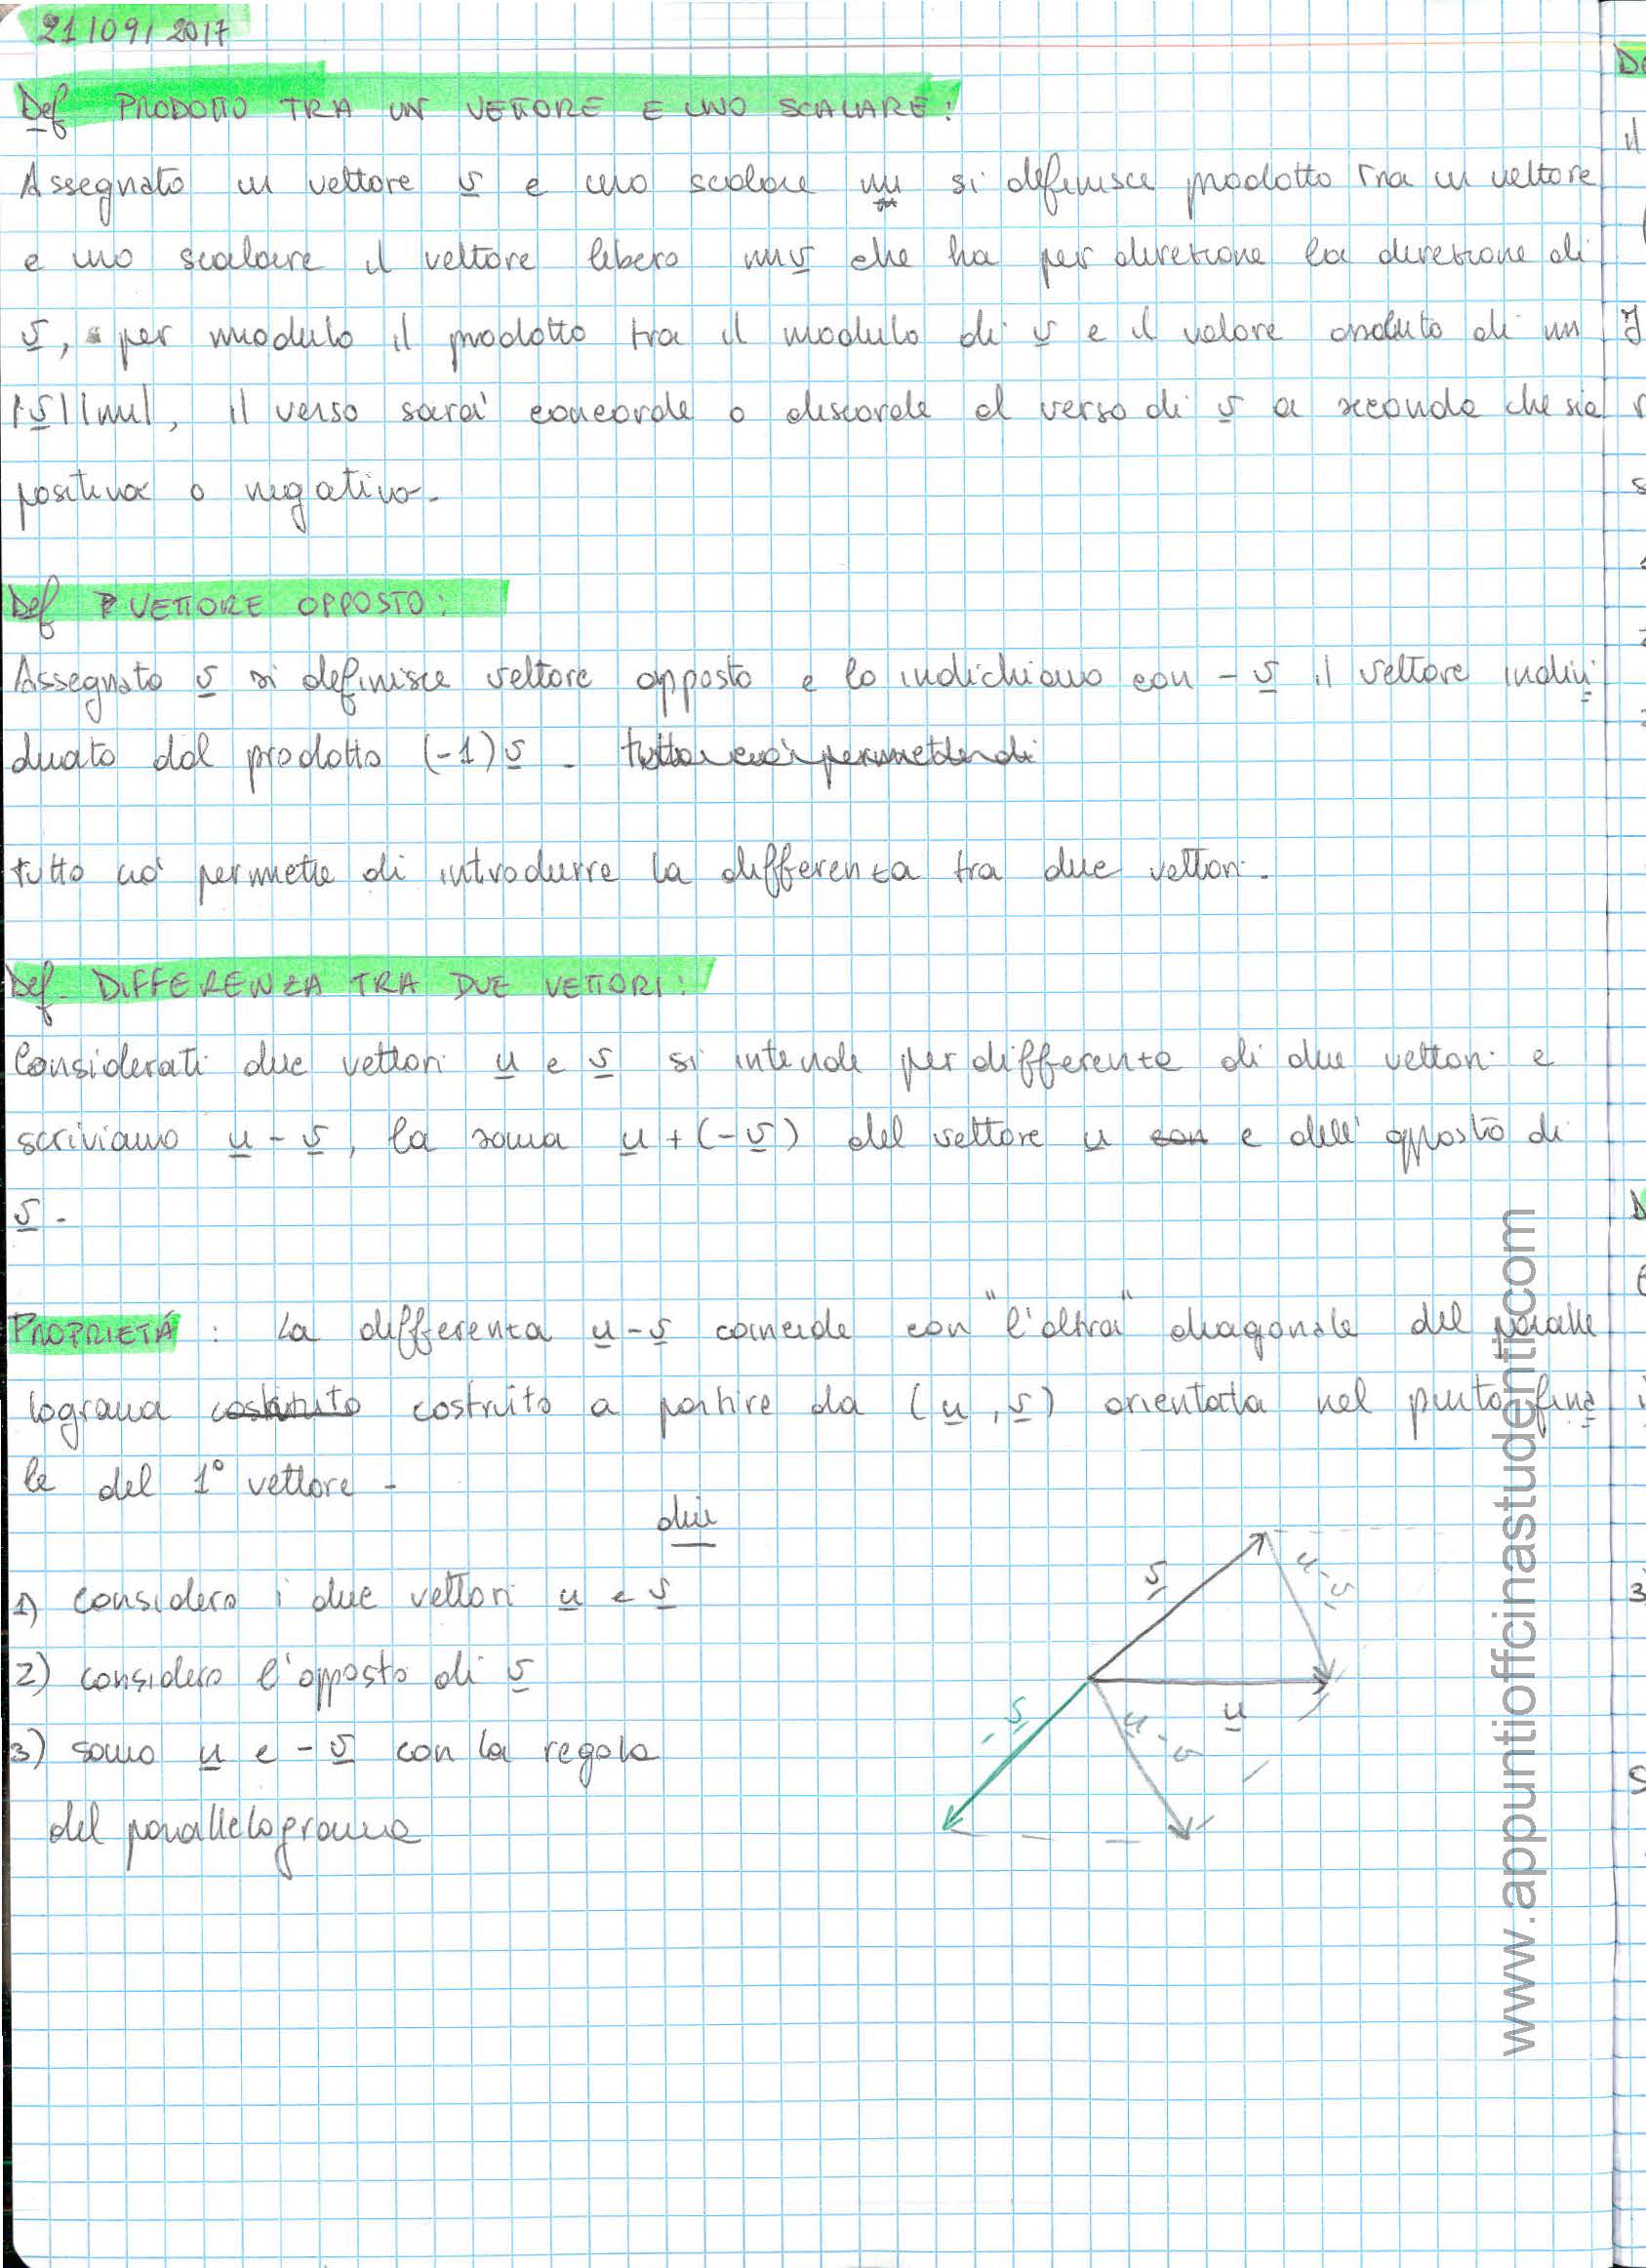 21/09/2017
Def PRODOTTO TRA UN VETTORE E UNO SCALARE:
Assegnato un vettore v e uno scalare m si definisce prodotto tra un vettore
e uno scalare il vettore libero mv che ha per direzione la direzione di
v, per modulo il prodotto tra il modulo di v e il valore assoluto di m
|v||m|, il verso sarà concorde o discorde al verso di v a seconda che sia
positivo o negativo.
Def VETTORE OPPOSTO:
Assegnato v si definisce vettore opposto e lo indichiamo con -v il vettore indivi
duato dal prodotto (-1)v.
tutto ciò permette di introdurre la differenza tra due vettori.
Def. DIFFERENZA TRA DUE VETTORI:
Considerati due vettori u e v si intende per differenza di due vettori e
scriviamo u-v, la somma u+(-v) del vettore u con e dell'opposto di
v.
PROPRIETÁ: La differenza u-v coincide con "l'altra" diagonale del paralle
logramma costruito a partire da (u,v) orientata nel punto fina
le del 1° vettore -
dim
1) considero i due vettori u e v
2) considero l'opposto di v
3) sommo u e -v con la regola
del parallelogramma
v
u-v
-v
u-v
u
www.appuntiofficinastudenti.com